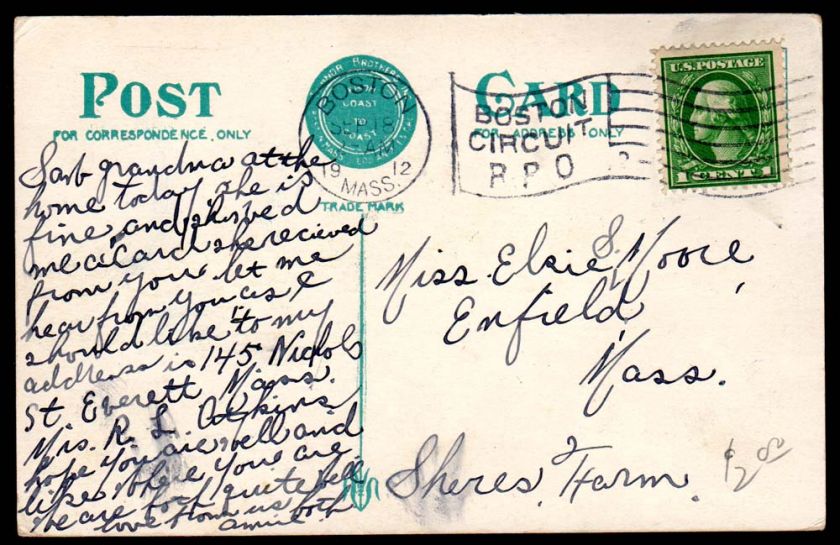 POST CARD
FOR CORRESPONDENCE ONLY
FOR ADDRESS ONLY
COAST
TO
COAST
TRADE MARK
BOSTON
SEP 18
AM
19 12
MASS.
BOSTON
CIRCUIT
R P O
U.S. POSTAGE
1 CENT 1
Saw grandma at the
home today she is
fine and showed
me a card she recieved
from you. let me
hear from you as I
should like to my
address is 145 Nichols
St Everett, Mass.
Mrs. R. L. Atkins.
hope you are well and
likes where you are.
we are both quite well
love from us both
Miss. Elsie S. Moore
Enfield,
Mass.
Sheres Farm.
$2.00